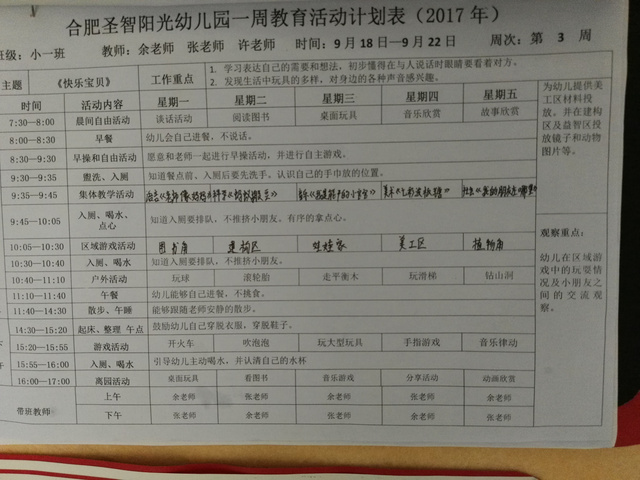 合肥圣智阳光幼儿园一周教育活动计划表（2017 年）
班级：小一班 教师：余老师 张老师 许老师 时间：9 月 18 日—9 月 22 日 周次：第 3 周
主题 《快乐宝贝》 工作重点 1. 学习表达自己的需要和想法，初步懂得在与人说话时眼睛要看着对方。
2. 发现生活中玩具的多样，对身边的各种声音感兴趣。
时间 活动内容 星期一 星期二 星期三 星期四 星期五
7:30—8:00 晨间自由活动 谈话活动 阅读图书 桌面玩具 音乐欣赏 故事欣赏
8:00—8:30 早餐 幼儿会自己进餐，不说话。
8:30—9:30 早操和自由活动 愿意和老师一起进行早操活动，并进行自主游戏。
9:30—9:35 盥洗、入厕 知道餐点前、入厕后要先洗手，认识自己的手巾放的位置。
9:35—9:45 集体教学活动
9:45—10:05 入厕、喝水、点心 知道入厕要排队，不推挤小朋友、有序的拿点心。
10:05—10:30 区域游戏活动 图书角 建构区 娃娃家 美工区 植物角
10:30—10:40 入厕、喝水 知道入厕要排队，不推挤小朋友。
10:40—11:10 户外活动 玩球 滚轮胎 走平衡木 玩滑梯 钻山洞
11:10—11:40 午餐 幼儿能够自己进餐，不挑食。
11:40—14:30 散步、午睡 能够跟随老师安静的散步。
14:30—15:20 起床、整理 午点 鼓励幼儿自己穿脱衣服，穿脱鞋子。
15:20—15:55 游戏活动 开火车 吹泡泡 玩大型玩具 手指游戏 音乐律动
15:55—16:00 入厕、喝水 引导幼儿主动喝水，并认清自己的水杯
16:00—17:00 离园活动 桌面玩具 看图书 音乐游戏 分享活动 动画欣赏
带班教师 上午 余老师 张老师 余老师 张老师 余老师
下午 张老师 余老师 张老师 余老师 张老师
为幼儿提供美
工区材料投
放。并在建构
区及益智区投
放镜子和动物
图片等。
观察重点：
幼儿在区域游
戏中的玩耍情
况及小朋友之
间的交流观
察。